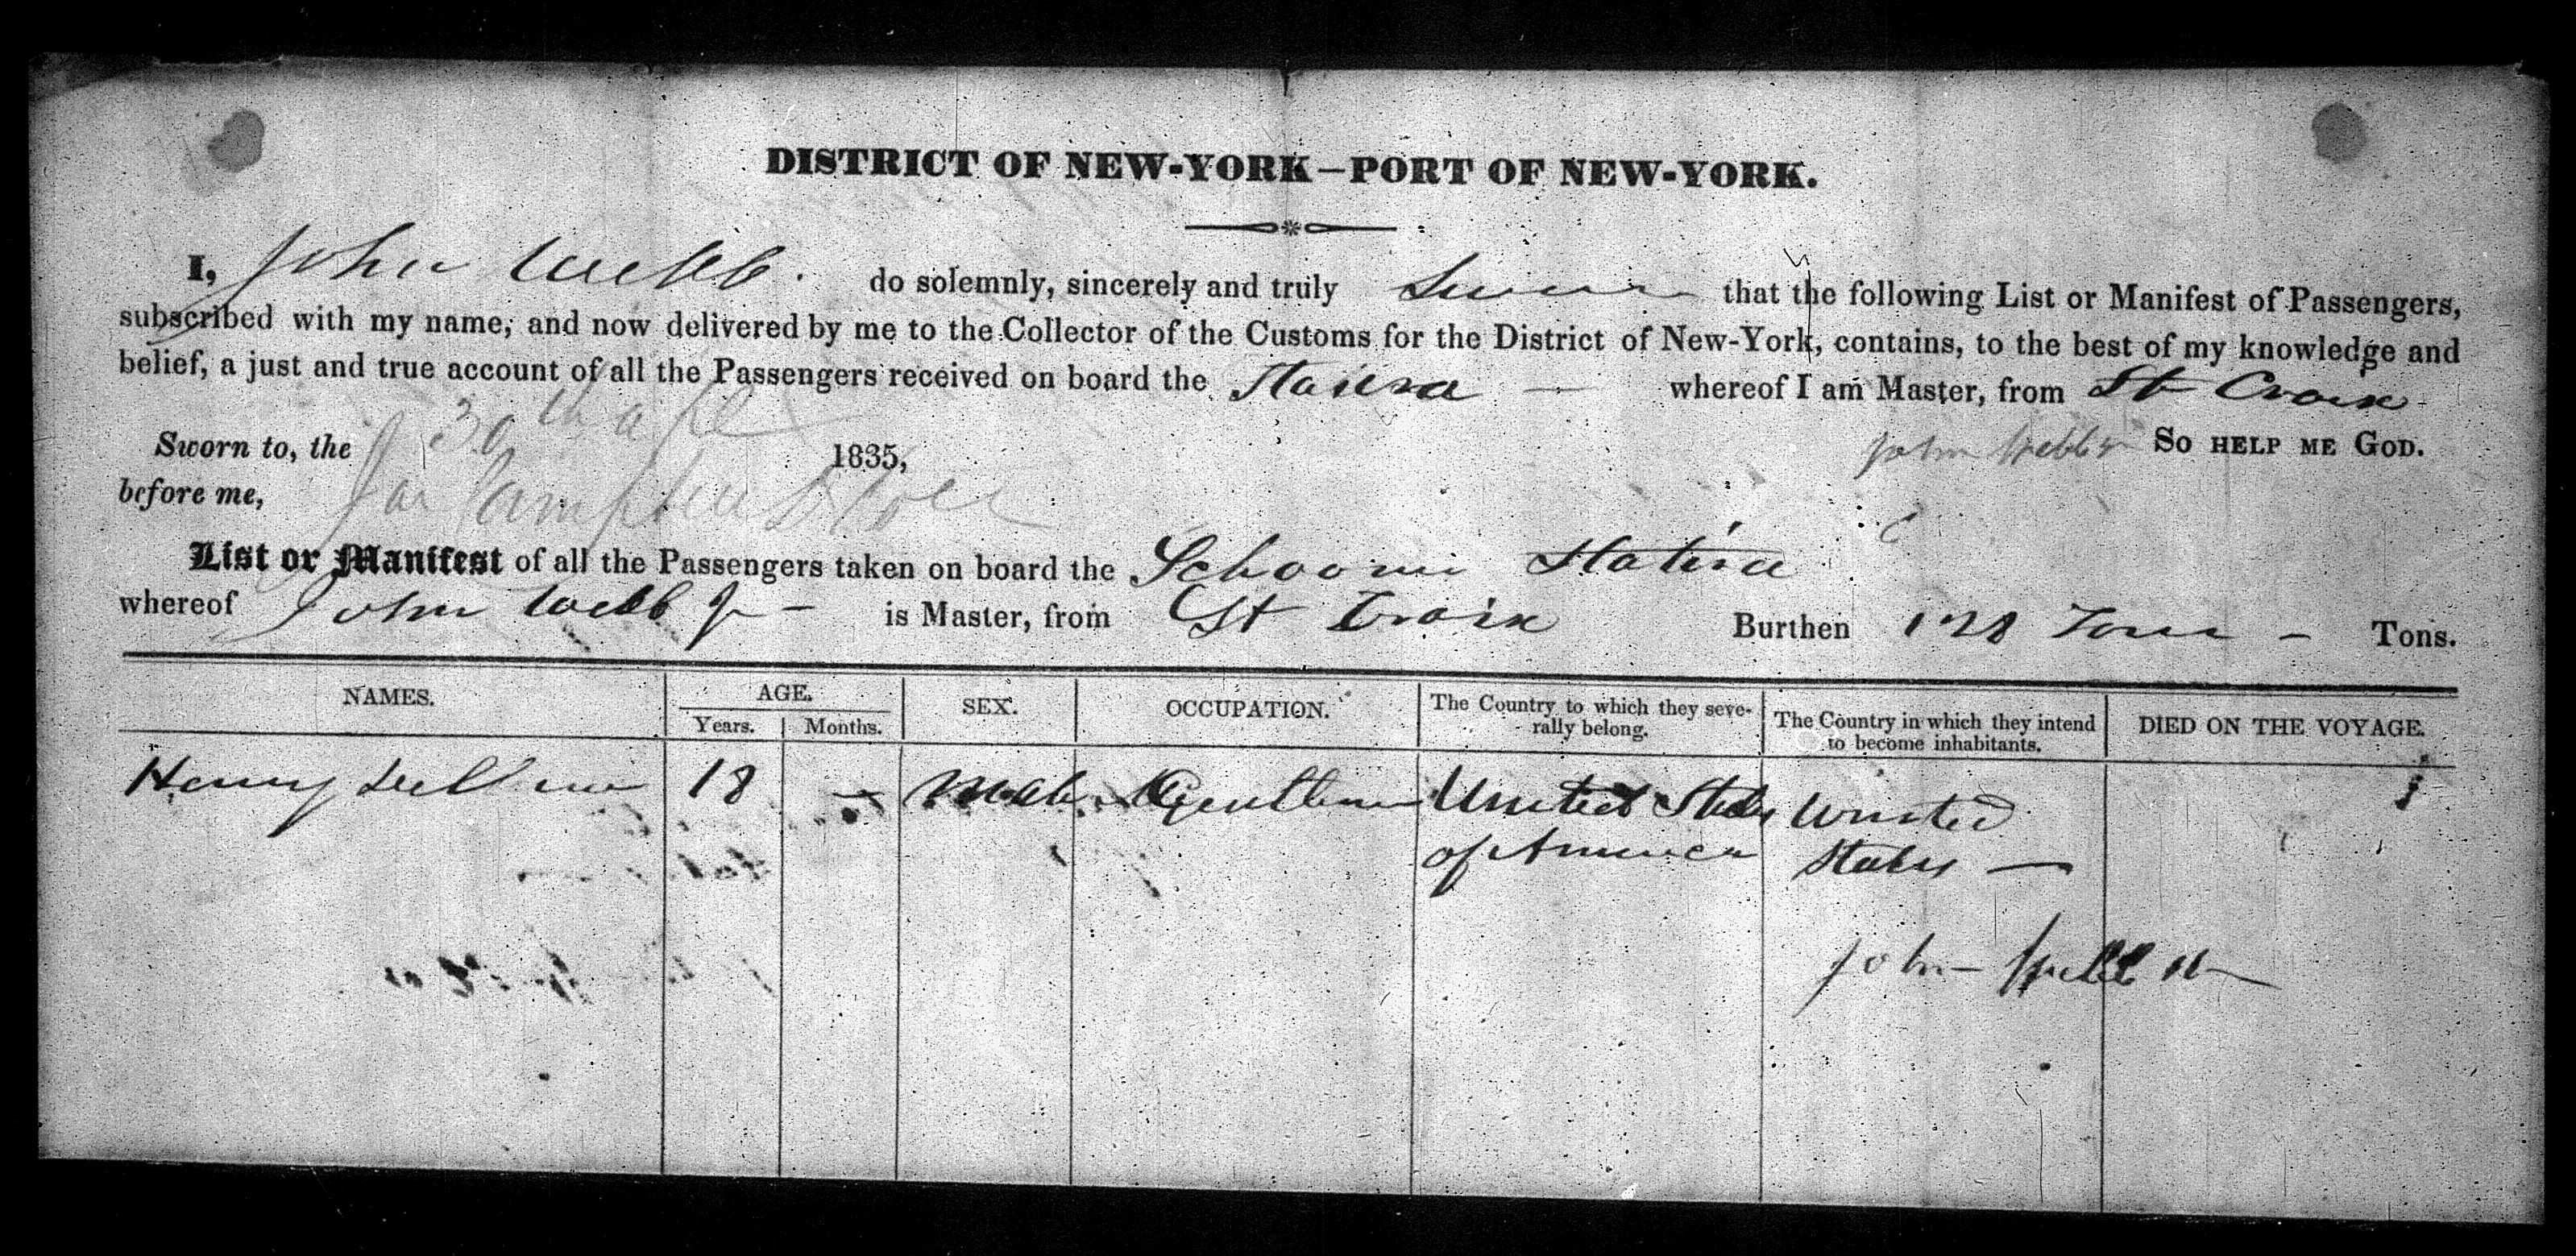 DISTRICT OF NEW-YORK—PORT OF NEW-YORK.
I, John Webb. do solemnly, sincerely and truly Swear that the following List or Manifest of Passengers,
subscribed with my name, and now delivered by me to the Collector of the Customs for the District of New-York, contains, to the best of my knowledge and
belief, a just and true account of all the Passengers received on board the Statira — whereof I am Master, from St Croix
Sworn to, the 30th 1835, John Webb Jr SO HELP ME GOD.
before me,
List or Manifest of all the Passengers taken on board the Schooner Statira
whereof John Webb Jr — is Master, from St Croix Burthen 128 Tons — Tons.
NAMES. AGE. SEX. OCCUPATION. The Country to which they seve-
rally belong. The Country in which they intend
to become inhabitants. DIED ON THE VOYAGE.
Years. Months.
Henry 18 — Male Gentleman United States United
of America States —
John Webb Jr